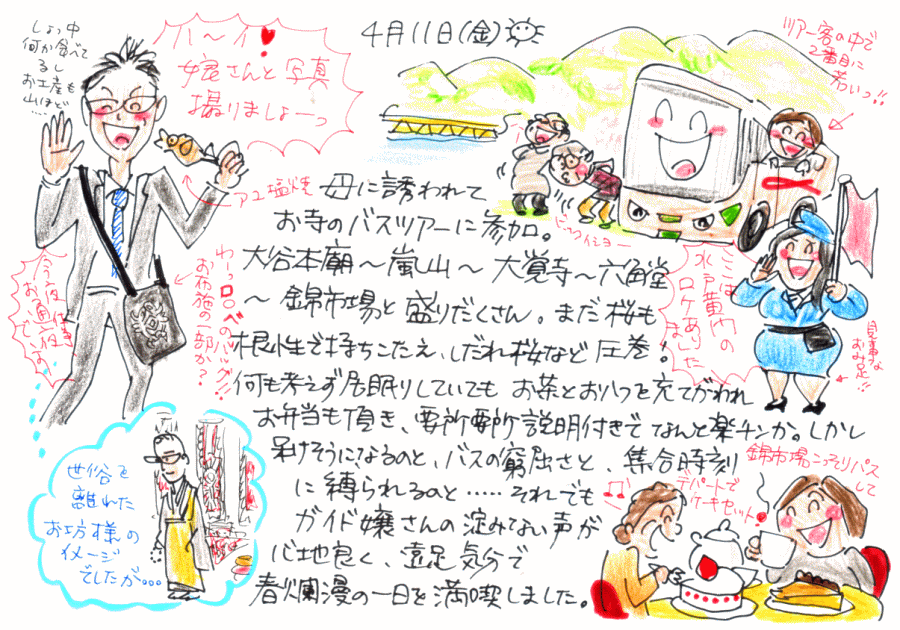 4月11日(金)
しょっ中
何か食べて
るし
お土産も
山ほど…
ハ〜イ♥
皆さんと写真
撮りましょーっ
アユ塩焼
ツアー客の中で
2番目に
若いっ!!
ドッコイショー
母に誘われて
お寺のバスツアーに参加。
大谷本廟〜嵐山〜大覚寺〜六角堂
〜錦市場と盛りだくさん。まだ桜も
根性で持ちこたえ、しだれ桜など圧巻!
何も考えず居眠りしていても お茶とおやつを充てがわれ
お弁当も頂き、要所要所説明付きで なんと楽チンか。しかし
呆けそうになるのと、バスの窮屈さと、集合時刻
に縛られるのと……それでも
ガイド嬢さんの淀みない声が
心地良く、遠足気分で
春爛漫の一日を満喫しました。
ここは
水戸黄門の
ロケあり
ました
見事な
おみ足!!
お布施の一部か?
今夜
お通夜
世俗を
離れた
お坊様の
イメージ
でしたが…
錦市場こっそりパス
して
デパートで
ケーキセット♥